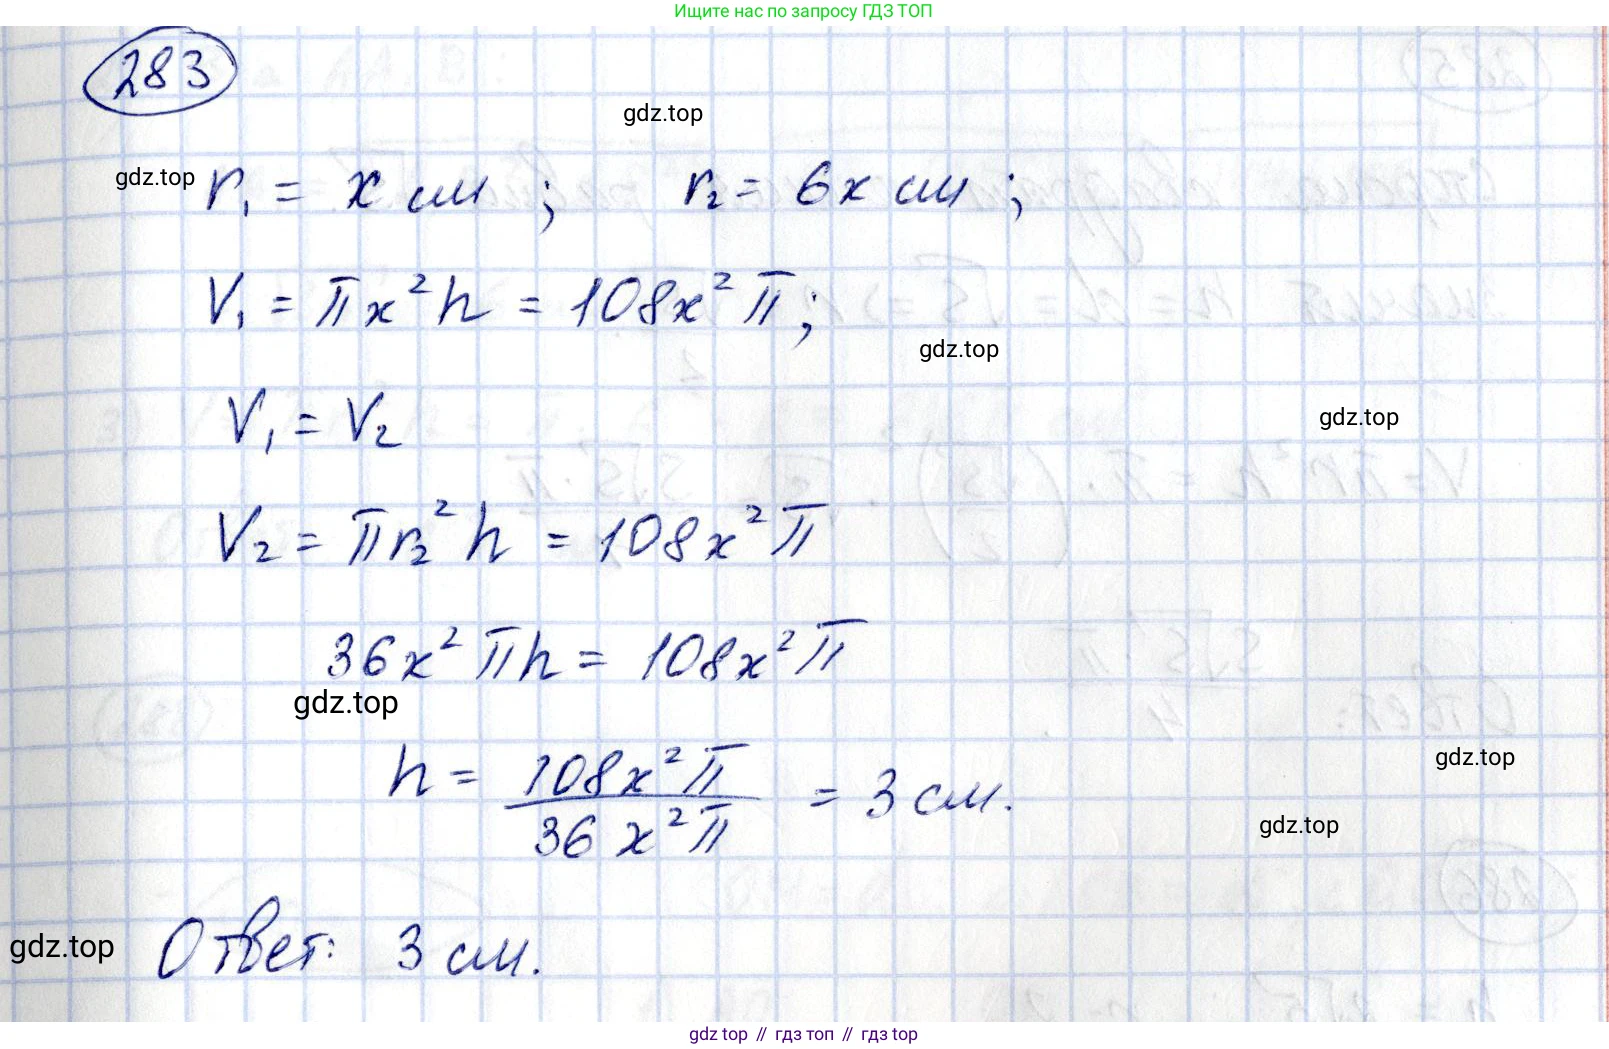 Ищите нас по запросу ГДЗ ТОП
283
gdz.top
gdz.top
r₁ = x см ; r₂ = 6x см ;
V₁ = πx²h = 108x²π;
gdz.top
V₁ = V₂
gdz.top
V₂ = πr₂²h = 108x²π
36x²πh = 108x²π
gdz.top
h = 108x²π / 36x²π = 3 см.
gdz.top
gdz.top
Ответ: 3 см.
gdz.top
gdz top // гдз топ // гдз top